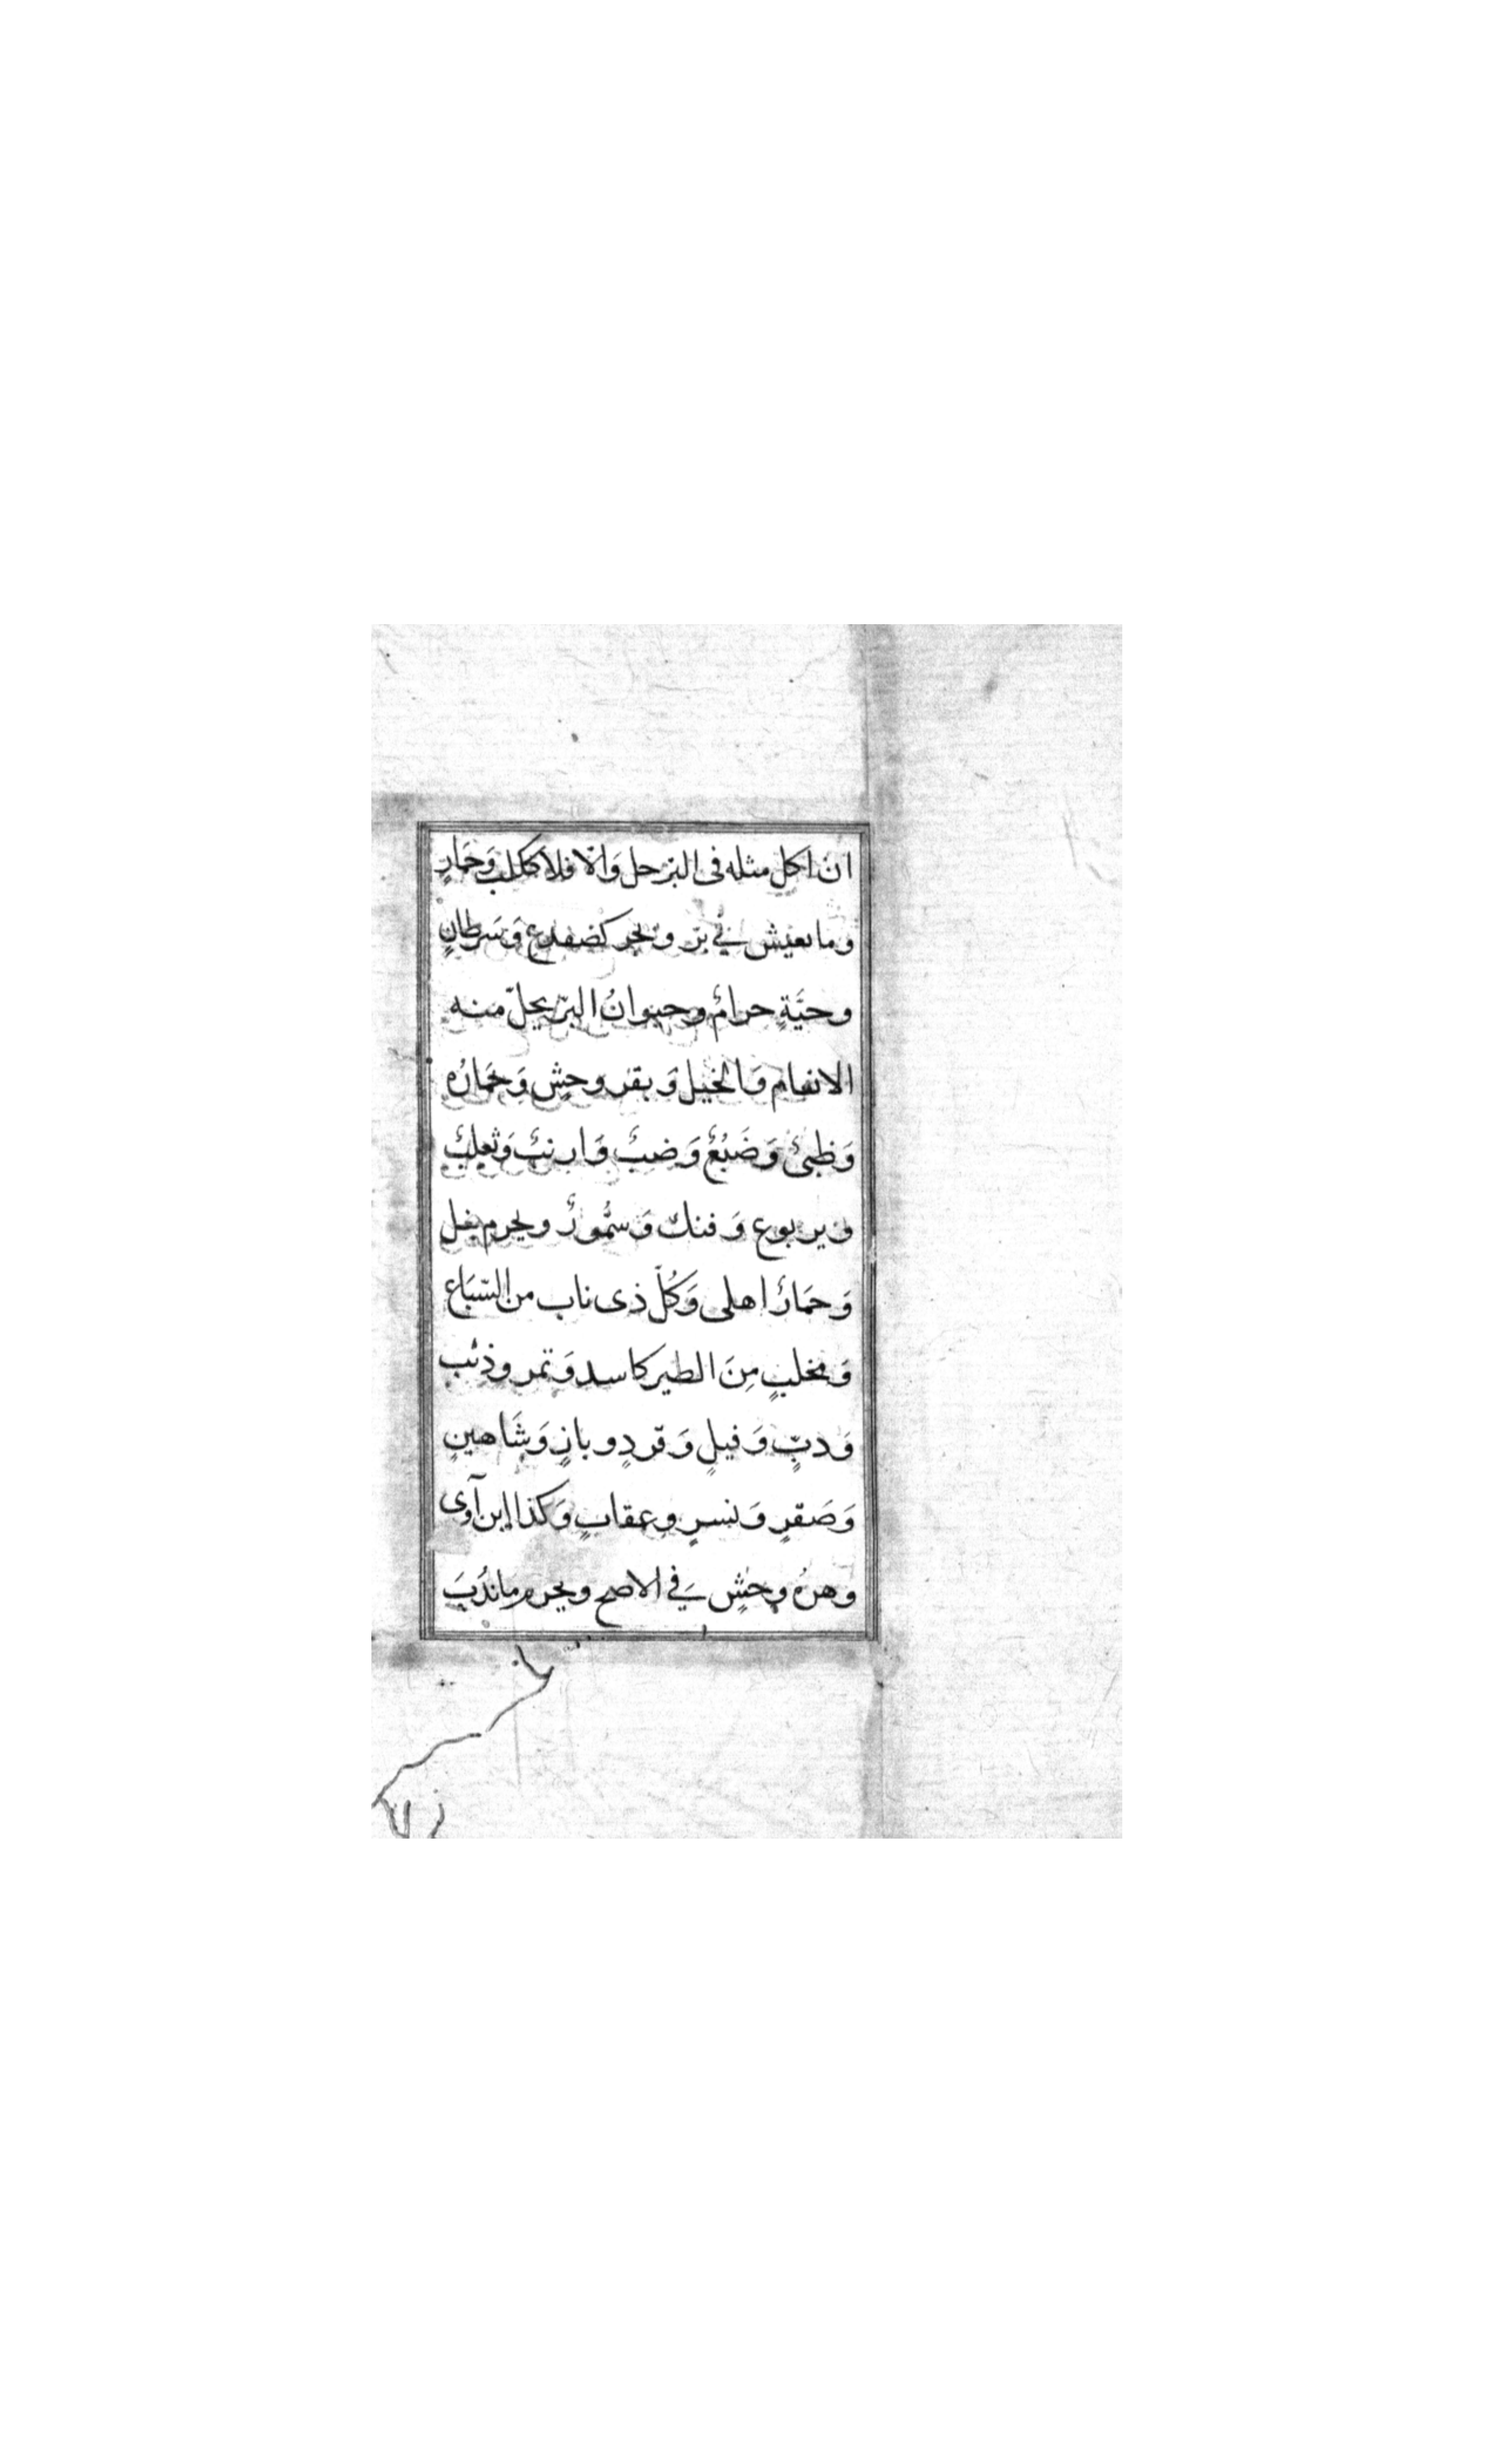 ان اكل مثله فى البرّ حل وَالّا فلا ككلب وَحمَارٍ
وما يعيش فے برّ وبحر كضفدع وَسَرطانٍ
وحيَّةٍ حرامٌ وحيوانُ البرّ يحلّ منه
الانعام وَالخيل وَ بقر وحشٍ وَحمَارُه
وَظبىٌ وَضَبُعٌ وَ ضبٌ وَارنبٌ وَثعلبٌ
وَيربوع وَ فنك وَ سمُّورٌ ويحرم بغل
وَحمَارٌ اهلى وَكُلّ ذى ناب من السّبَاع
وَمخلبٍ مِنَ الطير كاسد وَنمر وذئب
وَدبٍّ وَ فيلٍ وَ قردٍ وبازٍ وَشَاهينٍ
وَصَقرٍ وَ نسرٍ وعقابٍ وَكذا ابن آوى
وَهرهُ وحشٍ فے الاصح ويحرم ماندُبَ